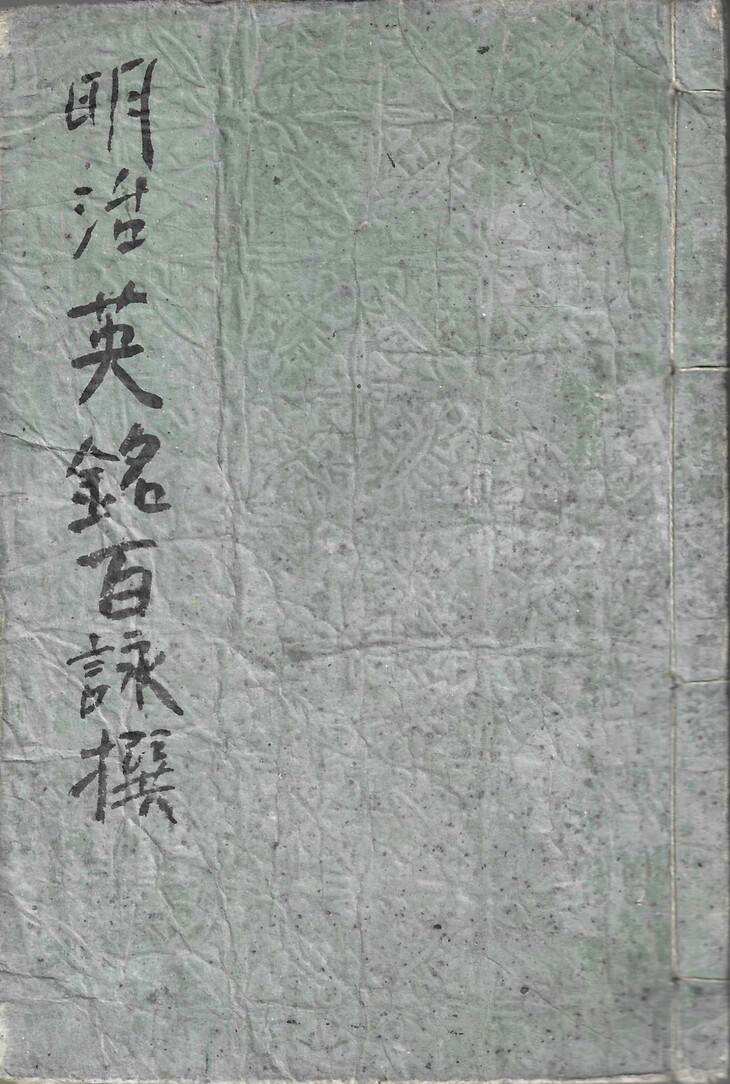 明治英銘百詠撰